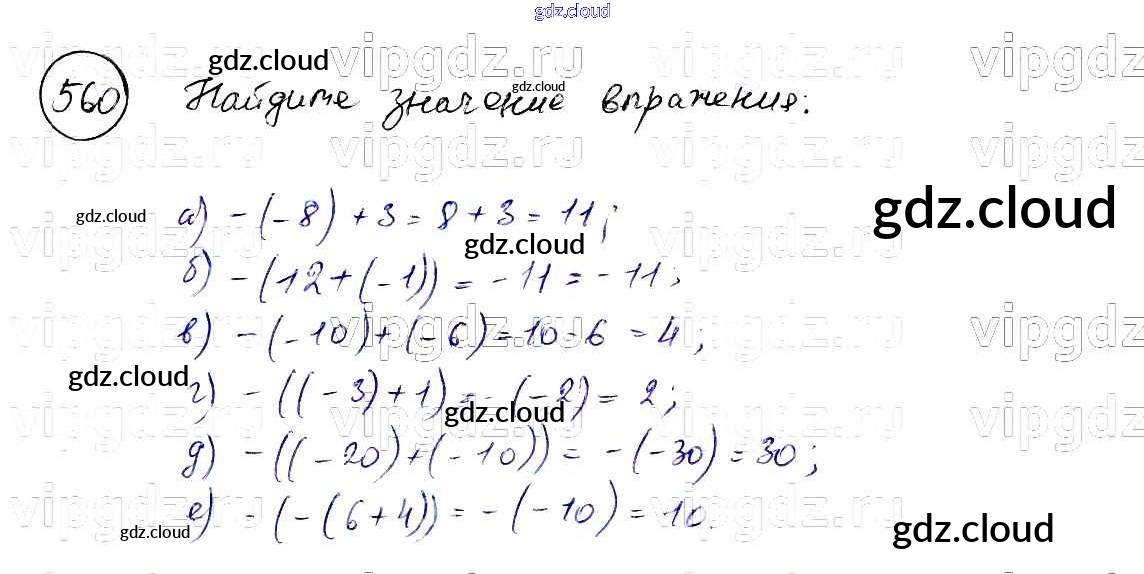 gdz.cloud
vipgdz.ru vipgdz.ru vipgdz.ru vipgdz
gdz.cloud
560 Найдите значение впражения:
gdz.cloud
vipgdz.ru vipgdz.ru vipgdz.ru vipgdz
gdz.cloud
а) -(-8) + 3 = 8 + 3 = 11;
gdz.cloud
vipgdz.ru vipgdz.ru vipgdz.ru vipgdz
gdz.cloud
б) -(12+(-1)) = -11 = -11;
в) -(-10)+(-6) = 10-6 = 4;
vipgdz.ru vipgdz.ru vipgdz.ru vipgdz
gdz.cloud
г) -((-3)+1) = -(-2) = 2;
gdz.cloud
vipgdz.ru vipgdz.ru vipgdz.ru vipgdz
д) -((-20)+(-10)) = -(-30) = 30;
е) -(-(6+4)) = -(-10) = 10.
vipgdz.ru vipgdz.ru vipgdz.ru vipgdz
gdz.cloud
gdz.cloud